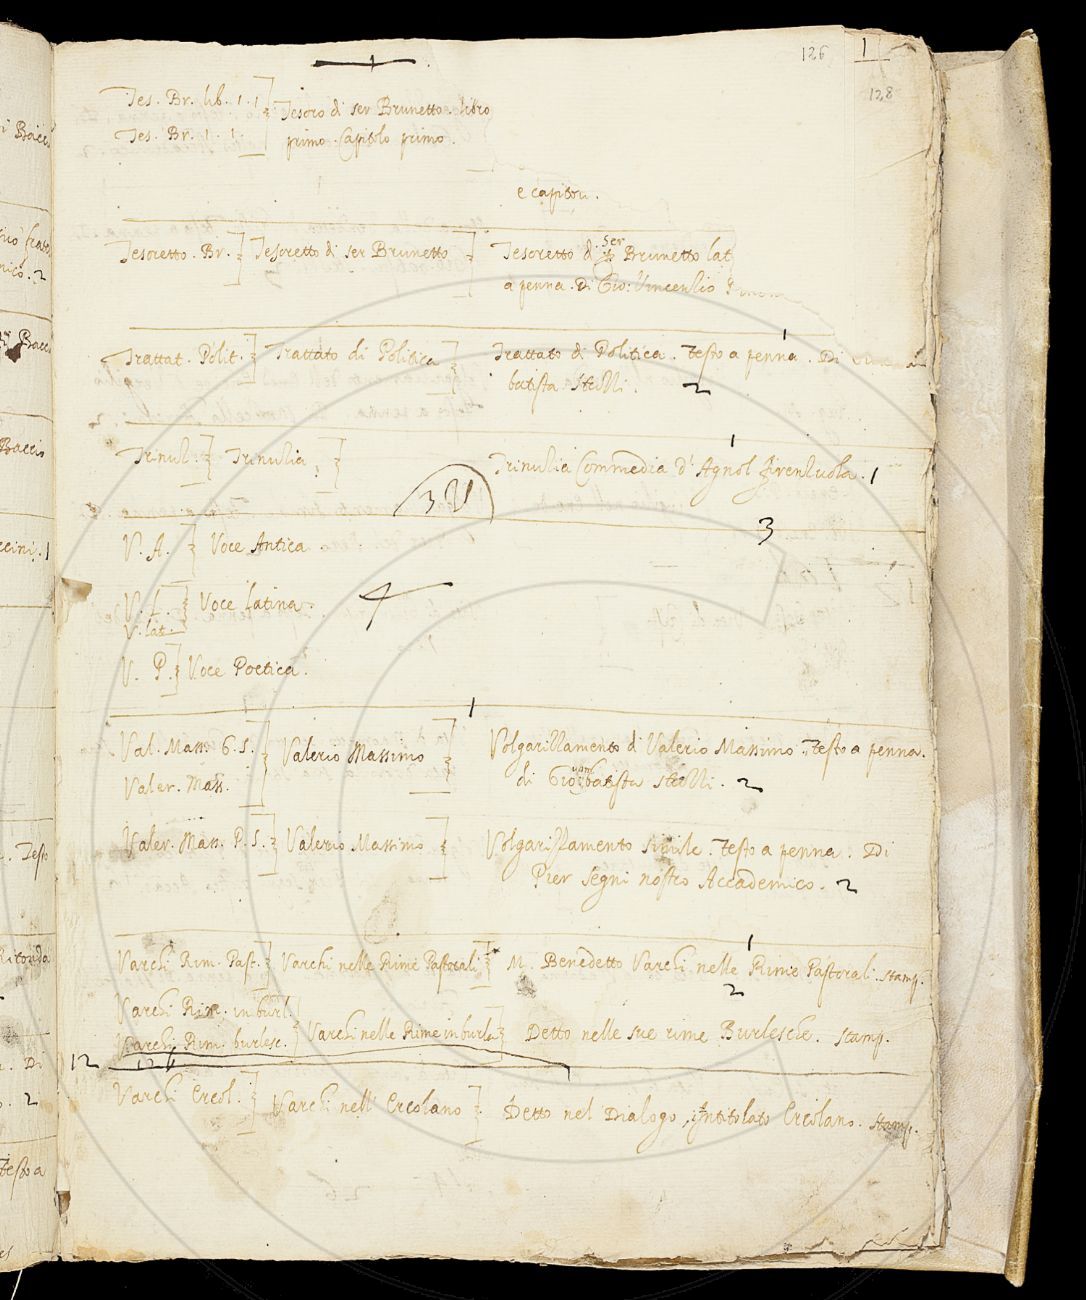 126 1
128
Tes. Br. lib. 1. 1 Tesoro di ser Brunetto. libro
Tes. Br. 1. 1. primo. Capitolo primo.
e capitou.
Tesoretto. Br. Tesoretto di ser Brunetto Tesoretto di ser Brunetto lat
à penna. Di Gio: Vincenzio
Trattat. Polit. Trattato di Politica Trattato di Politica. Testo a penna. Di
batista Strozzi. 2
Trinuz. Trinuzia. Trinuzia Commedia d'Agnol firenzuola. 1
3 V
3
V. A. Voce Antica.
V. L. Voce Latina.
V. lat.
V. P. Voce Poetica.
1
Val. Mass. G. S. Valerio Massimo Volgarizzamento di Valerio Massimo. Testo a penna.
Valer. Mass. di Giouambatista Strozzi. 2
Valer. Mass. P. S. Valerio Massimo Volgarizzamento simile. Testo a penna. Di
Pier Segni nostro Accademico. 2
Varchi Rim. Past. Varchi nelle Rime Pastorali M. Benedetto Varchi nelle Rime Pastorali. stamp.
2
Varchi Rim. in burl.
Varchi Rim. burlesc. Varchi nelle Rime in burla Detto nelle sue rime Burlesche. Stamp.
12 126
Varchi Ercol. Varchi nell' Ercolano Detto nel Dialogo, intitolato Ercolano. stamp.